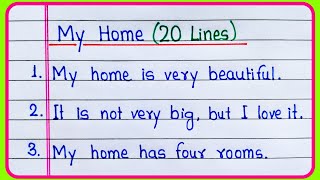 My Home (20 Lines)
1. My home is very beautiful.
2. It Is not very big, but I love it.
3. My home has four rooms.